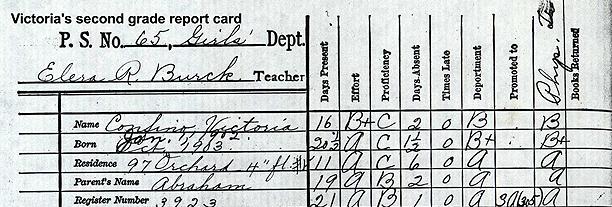 Victoria's second grade report card
P. S. No. 65, Girls' Dept.
Elera R Burck Teacher
Days Present Effort Proficiency Days Absent Times Late Deportment Promoted to Phys. Books Returned
Name Confino, Victoria 16 B+ C 2 0 B B
Born 1903 20½ A C 1½ 0 B+ B+
Residence 97 Orchard 4" fl. 11 A C 6 0 A A
Parent's Name Abraham 19 A B 2 0 A A
Register Number 3923 21 A B 1 0 A 3A(305) A